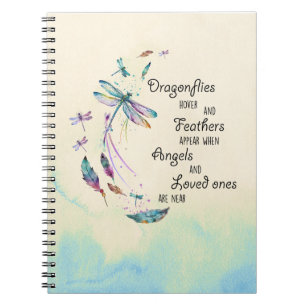 Dragonflies
HOVER AND
Feathers
APPEAR WHEN
Angels
AND
Loved ones
ARE NEAR